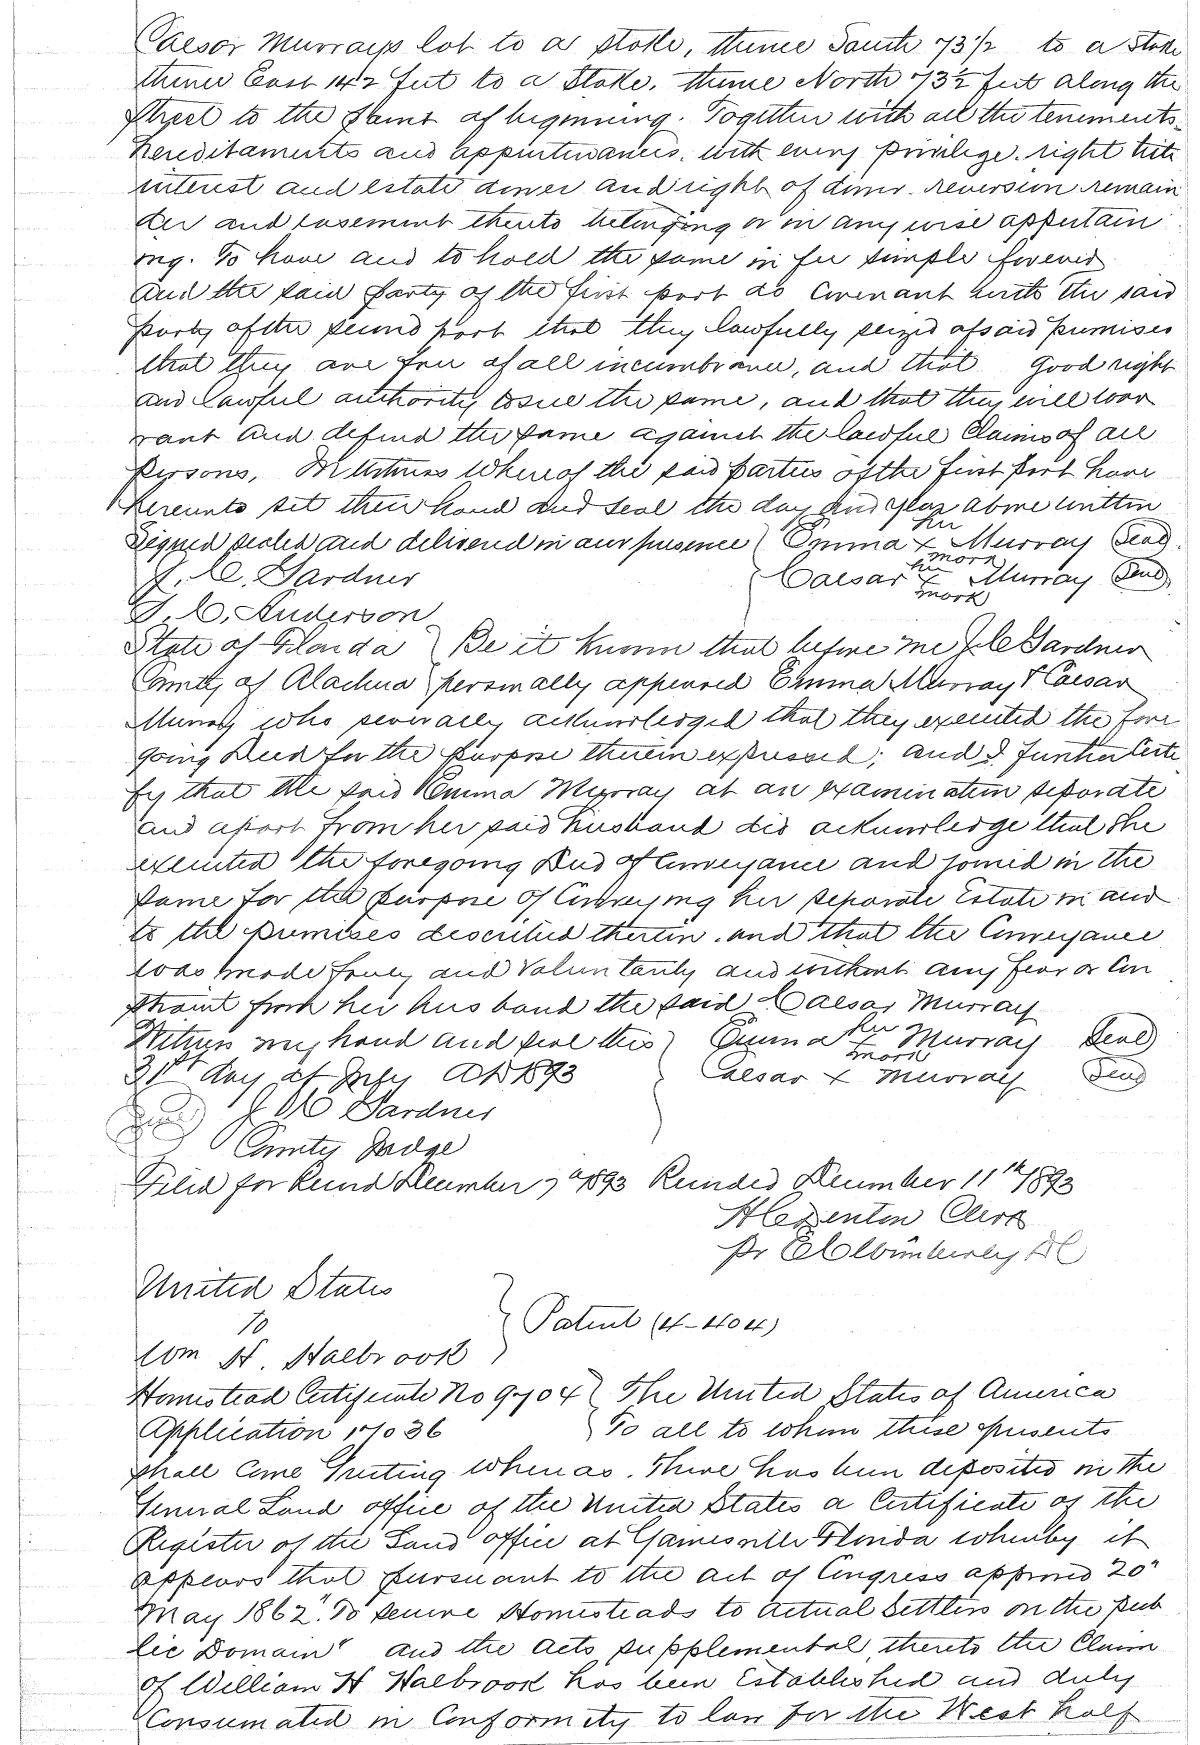 Caesor Murrays lot to a stake, thence South 73 1/2 to a Stake
thence East 142 feet to a Stake. thence North 73 1/2 feet along the
street to the point of beginning. Together with all the tenements
hereditaments and appurtenances. with every privilege. right title
interest and estate dower and right of dower. reversion remain
der and easement thereto belonging or in any wise appertain
ing. To have and to hold the same in fee simple forever
And the said party of the first part do Covenant with the said
party of the second part that they lawfully seized of said premises
that they are free of all incumbrance, and that good right
and lawful authority to sell the same, and that they will war
rant and defend the same against the lawful Claims of all
Persons. In Witness Whereof the said parties of the first part have
hereunto set their hand and seal the day and year above written
Signed sealed and delivered in our presence Emma her x mark Murray Seal
J. C. Gardner Caesar his x mark Murray Seal
T. C. Anderson
State of Florida Be it Known that before me J C Gardner
County of Alachua personally appeared Emma Murray & Caesar
Murray who severally acknowledged that they executed the fore
going Deed for the purpose therein expressed; and I further Certi
fy that the said Emma Murray at an examination seperate
and apart from her said husband did acknowledge that She
executed the foregoing Deed of Conveyance and joined in the
same for the purpose of Conveying her seperate Estate in and
to the premises described therein. and that the Conveyance
was made freely and Voluntarily and without any fear or Con
straint from her husband the said Caesar Murray
Witness my hand and seal this Emma her x mark Murray Seal
31st day of July AD 1893 Caesar x Murray Seal
Seal J C Gardner
County Judge
Filed for Record December 7th 1893 Recorded December 11th 1893
H C Denton Clerk
pr Wimberly DC
United States
To Patent (4-404)
Wm H. Halbrook
Homestead Certificate No 9704 The United States of America
Application 17036 To all to whom these presents
shall Come Greeting Whereas. There has been deposited in the
General Land office of the United States a Certificate of the
Register of the Land office at Gainesville Florida whereby it
appears that pursuant to the act of Congress approved 20"
May 1862 "To secure Homesteads to Actual Settlers on the pub
lic Domain" and the acts supplemental thereto the Claim
of William H Halbrook has been Established and duly
Consumated in Conformity to law for the West half